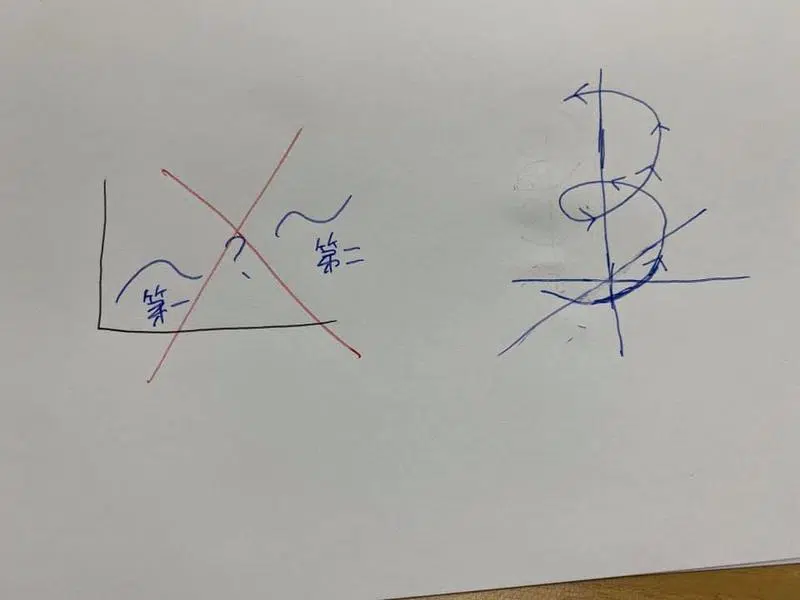 第一
?
第二